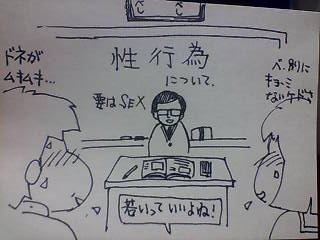 性行為
について.
要はSEX
ドネが
ムキムキ…
べ.別に
キョーミ
ないケドさ
若いっていいよね!